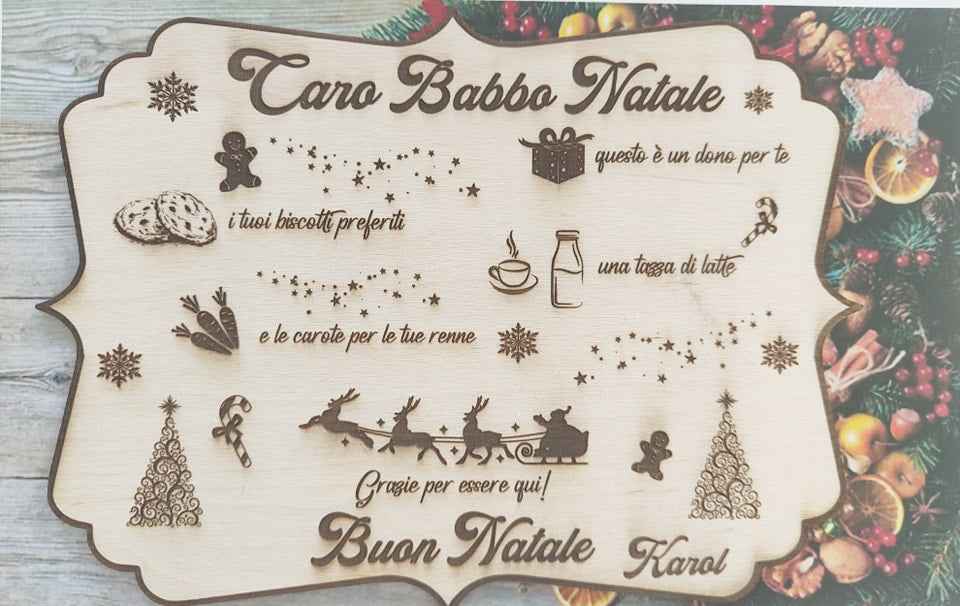 Caro Babbo Natale
questo è un dono per te
i tuoi biscotti preferiti
una tazza di latte
e le carote per le tue renne
Grazie per essere qui!
Buon Natale
Karol